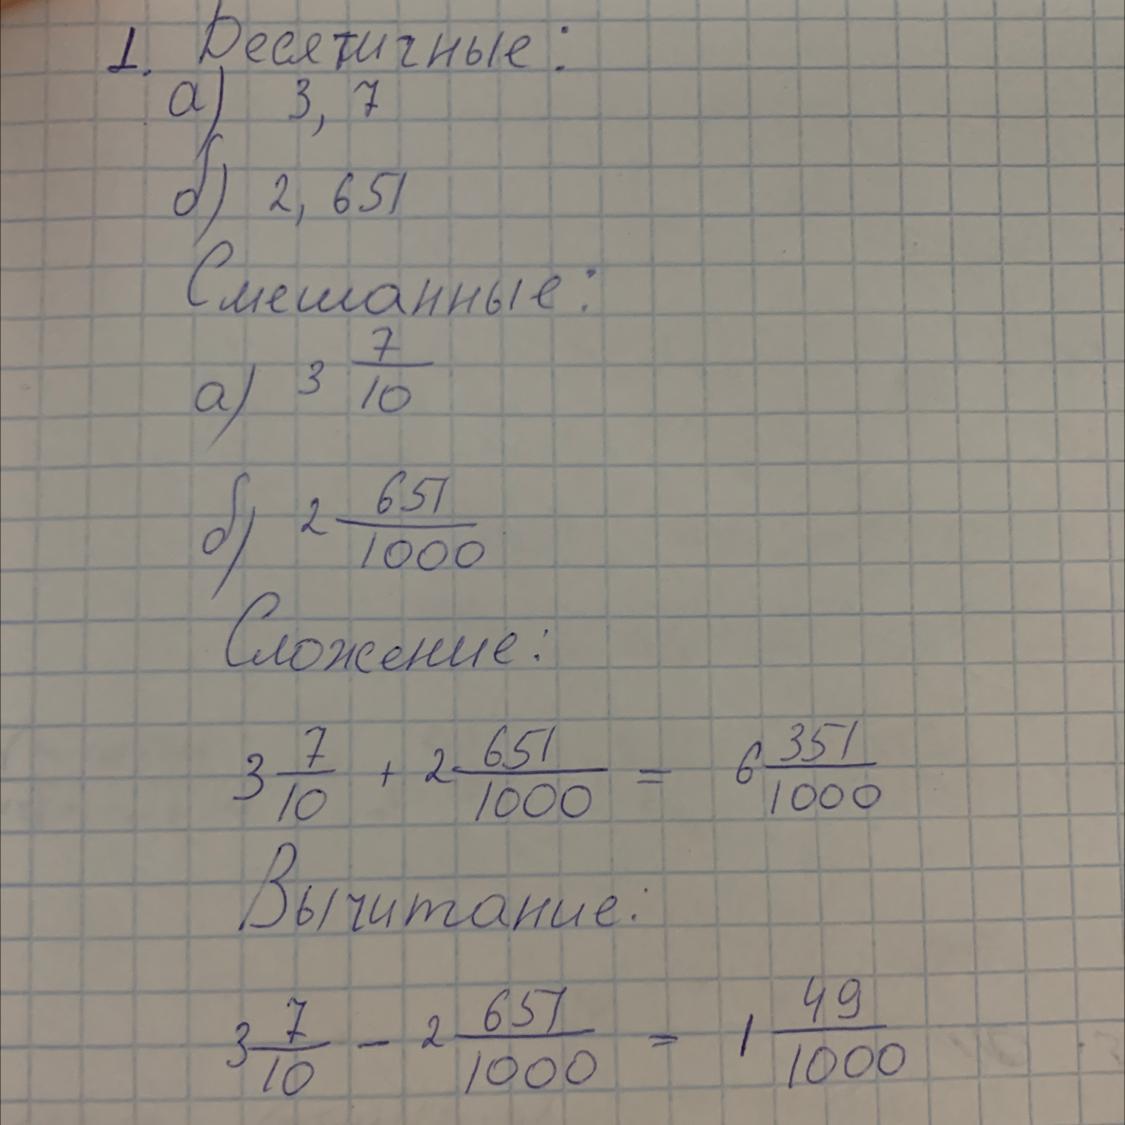 1. Десятичные:
а) 3,7
б) 2,651
Смешанные:
а) 3 7/10
б) 2 651/1000
Сложение:
3 7/10 + 2 651/1000 = 6 351/1000
Вычитание:
3 7/10 - 2 651/1000 = 1 49/1000